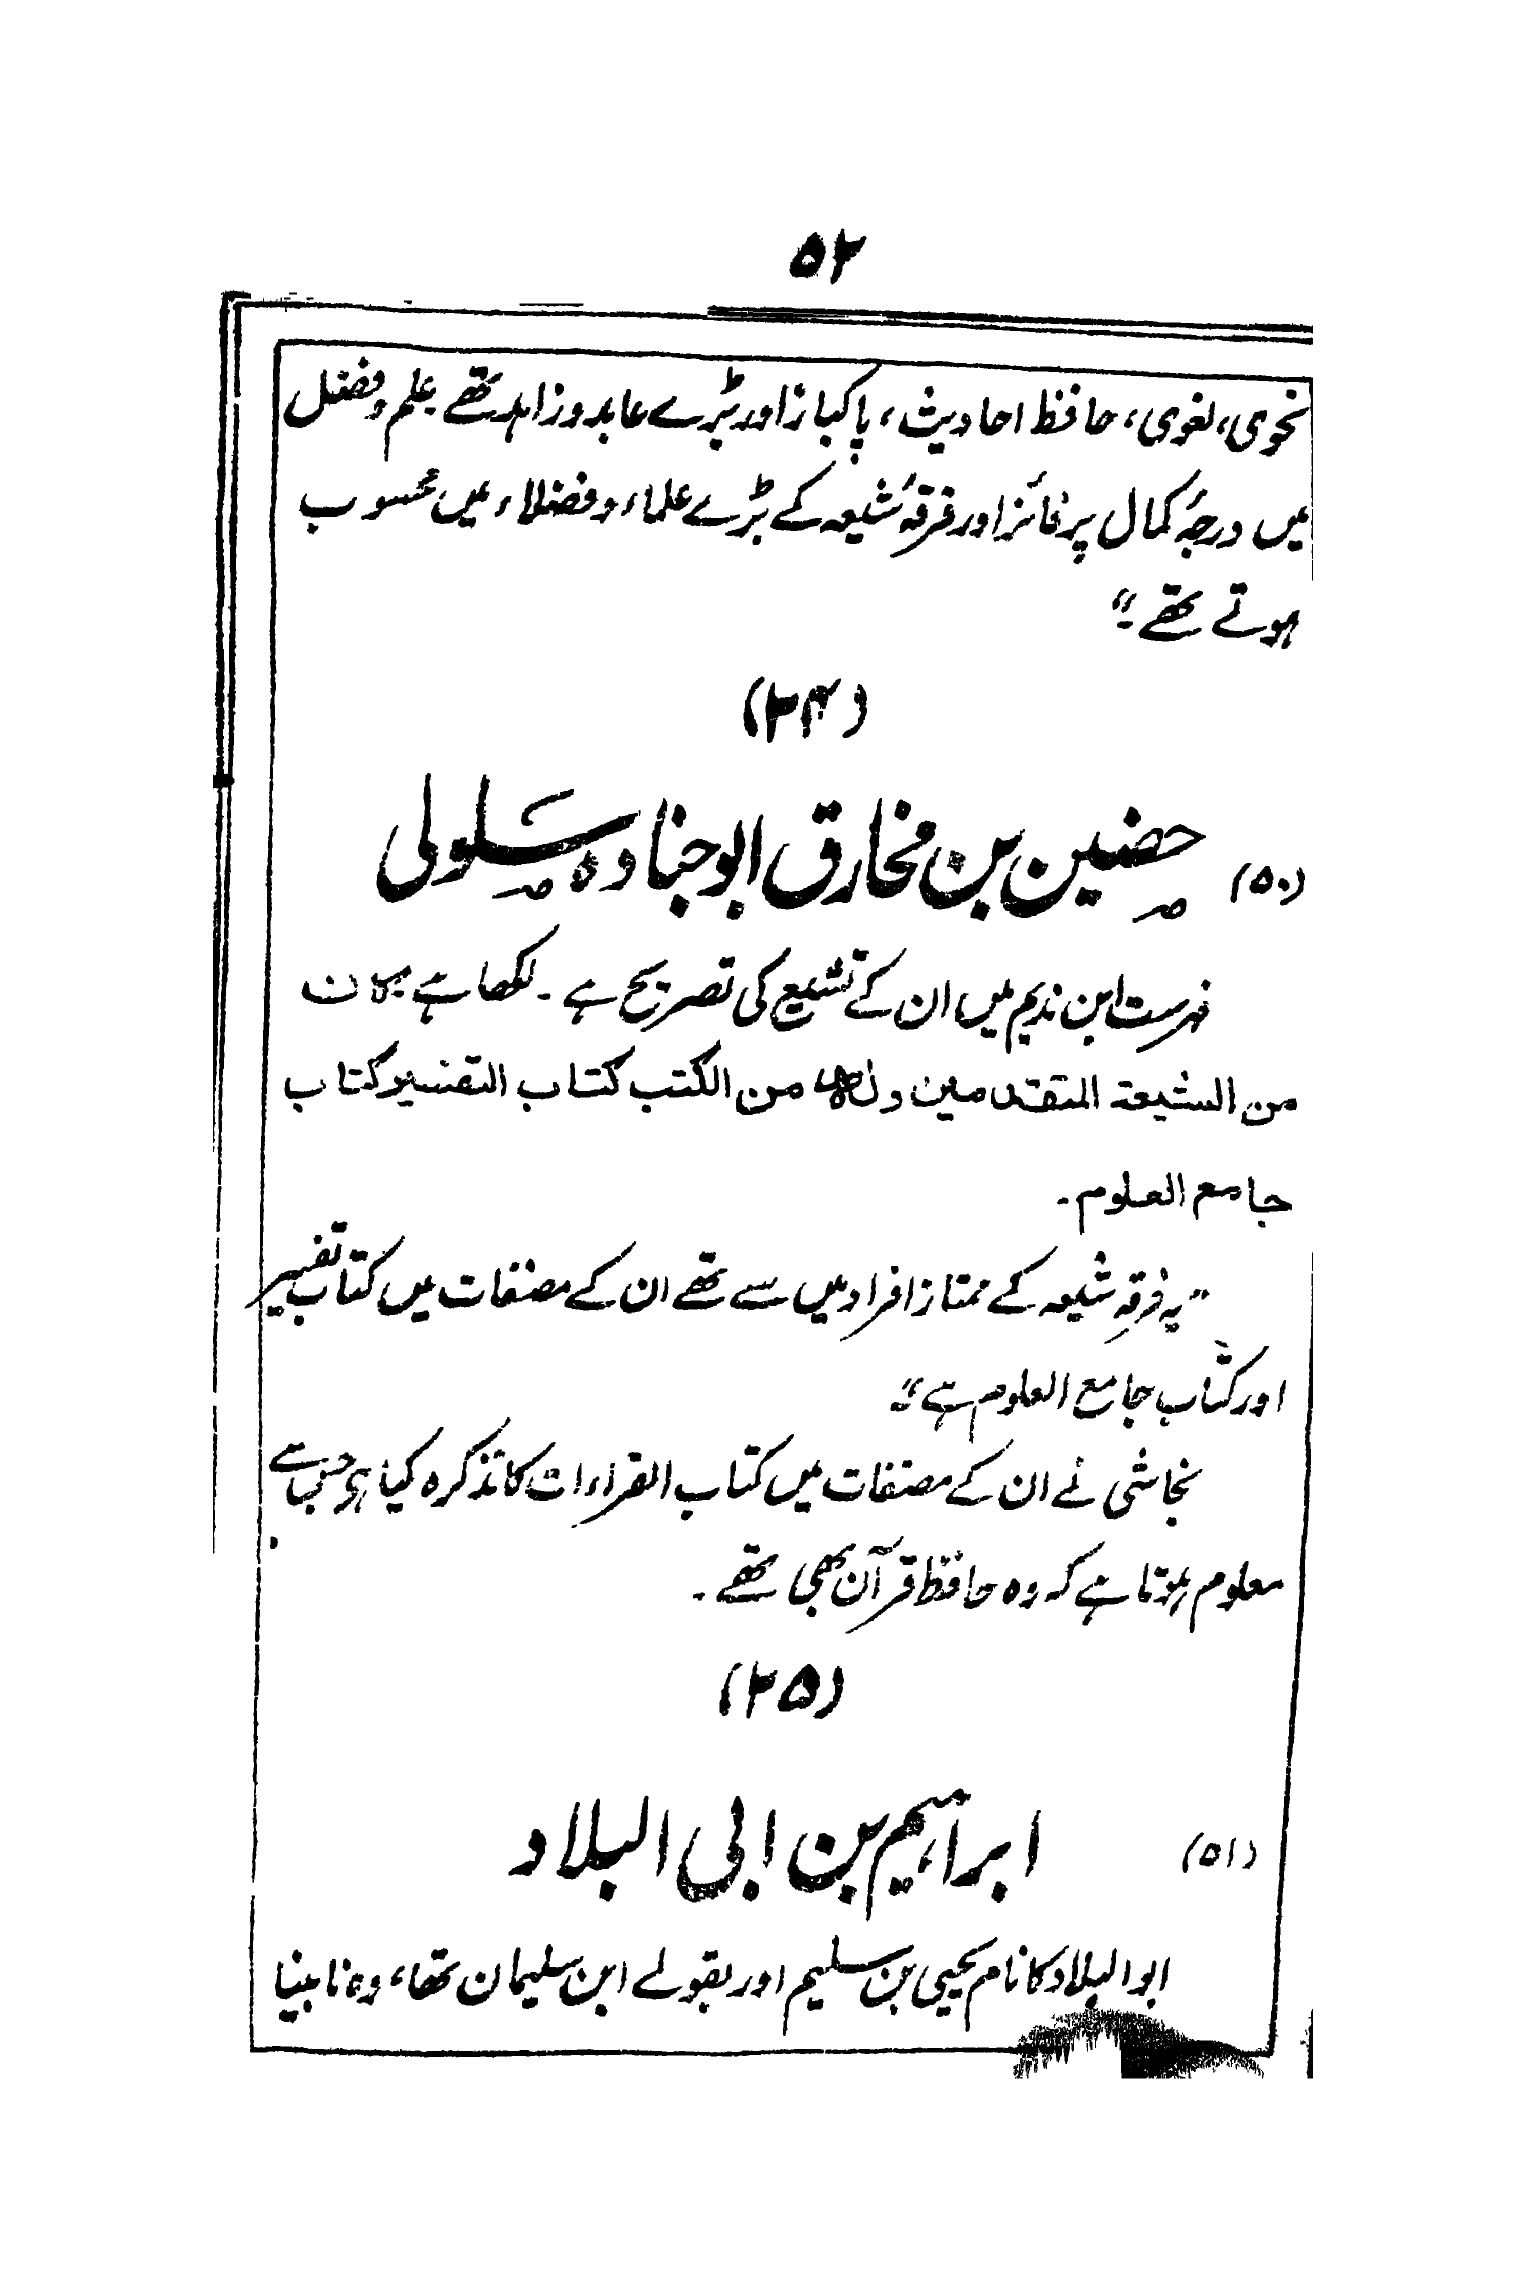 ۵۲
نحوی، لغوی، حافظ احادیث، پاکباز اور بڑے عابد و زاہد تھے علم و فضل
میں درجۂ کمال پر فائز اور فرقۂ شیعہ کے بڑے علماء و فضلاء میں محسوب
ہوتے تھے۔"
(۲۴)
(۵۰) حضین بن مخارق ابو جنادہ سلولی
فہرست ابن ندیم میں ان کے تشیع کی تصریح ہے۔ لکھا ہے۔ کان
من الشیعۃ المتقدمین ولہ من الکتب کتاب التفسیر کتاب
جامع العلوم۔
"یہ فرقہ شیعہ کے ممتاز افراد میں سے تھے ان کے مصنفات میں کتاب تفسیر
اور کتاب جامع العلوم ہے۔"
نجاشی نے ان کے مصنفات میں کتاب القراءات کا تذکرہ کیا ہی جس سے
معلوم ہوتا ہے کہ وہ حافظ قرآن بھی تھے۔
(۲۵)
(۵۱) ابراہیم بن ابی البلاد
ابو البلاد کا نام یحییٰ بن سلیم اور بقولے ابن سلیمان تھا، وہ نابینا